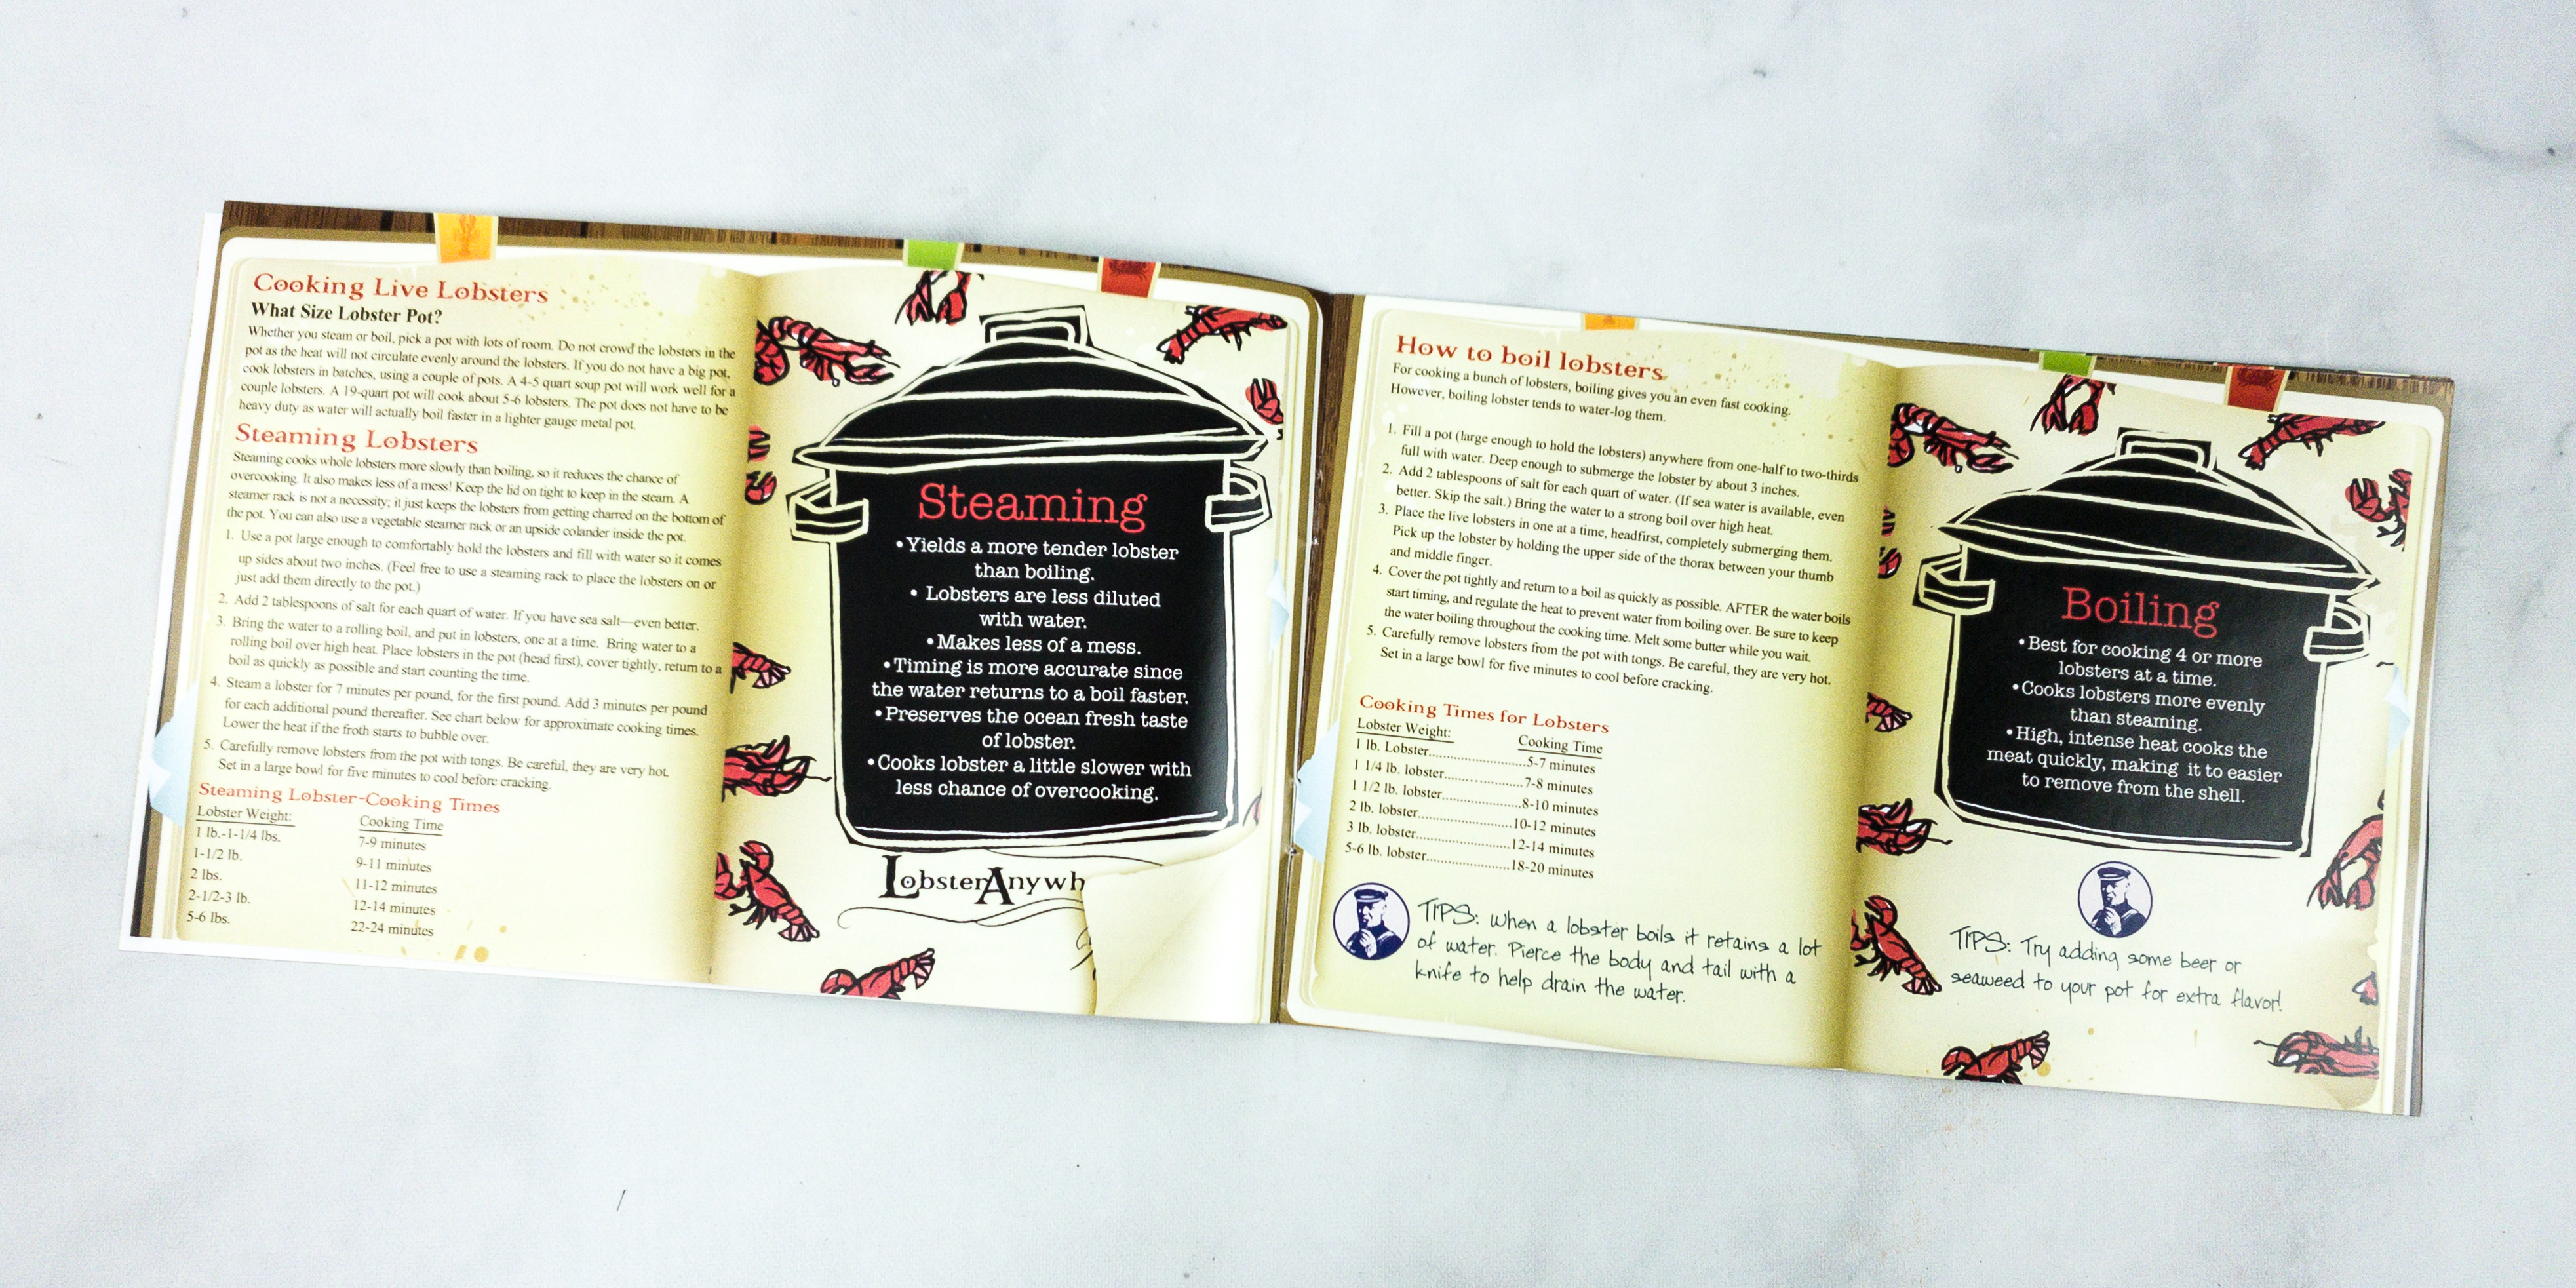 Cooking Live Lobsters
What Size Lobster Pot?
Whether you steam or boil, pick a pot with lots of room. Do not crowd the lobsters in the
pot as the heat will not circulate evenly around the lobsters. If you do not have a big pot,
cook lobsters in batches, using a couple of pots. A 4-5 quart soup pot will work well for a
couple lobsters. A 19-quart pot will cook about 5-6 lobsters. The pot does not have to be
heavy duty as water will actually boil faster in a lighter gauge metal pot.
Steaming Lobsters
Steaming cooks whole lobsters more slowly than boiling, so it reduces the chance of
overcooking. It also makes less of a mess! Keep the lid on tight to keep in the steam. A
steamer rack is not a necessity; it just keeps the lobsters from getting charred on the bottom of
the pot. You can also use a vegetable steamer rack or an upside colander inside the pot.
1. Use a pot large enough to comfortably hold the lobsters and fill with water so it comes
up sides about two inches. (Feel free to use a steaming rack to place the lobsters on or
just add them directly to the pot.)
2. Add 2 tablespoons of salt for each quart of water. If you have sea salt—even better.
3. Bring the water to a rolling boil, and put in lobsters, one at a time. Bring water to a
rolling boil over high heat. Place lobsters in the pot (head first), cover tightly, return to a
boil as quickly as possible and start counting the time.
4. Steam a lobster for 7 minutes per pound, for the first pound. Add 3 minutes per pound
for each additional pound thereafter. See chart below for approximate cooking times.
Lower the heat if the froth starts to bubble over.
5. Carefully remove lobsters from the pot with tongs. Be careful, they are very hot.
Set in a large bowl for five minutes to cool before cracking.
Steaming Lobster-Cooking Times
Lobster Weight: Cooking Time
1 lb.-1-1/4 lbs. 7-9 minutes
1-1/2 lb. 9-11 minutes
2 lbs. 11-12 minutes
2-1/2-3 lb. 12-14 minutes
5-6 lbs. 22-24 minutes
Steaming
• Yields a more tender lobster
than boiling.
• Lobsters are less diluted
with water.
• Makes less of a mess.
• Timing is more accurate since
the water returns to a boil faster.
• Preserves the ocean fresh taste
of lobster.
• Cooks lobster a little slower with
less chance of overcooking.
LobsterAnywh
How to boil lobsters
For cooking a bunch of lobsters, boiling gives you an even fast cooking.
However, boiling lobster tends to water-log them.
1. Fill a pot (large enough to hold the lobsters) anywhere from one-half to two-thirds
full with water. Deep enough to submerge the lobster by about 3 inches.
2. Add 2 tablespoons of salt for each quart of water. (If sea water is available, even
better. Skip the salt.) Bring the water to a strong boil over high heat.
3. Place the live lobsters in one at a time, headfirst, completely submerging them.
Pick up the lobster by holding the upper side of the thorax between your thumb
and middle finger.
4. Cover the pot tightly and return to a boil as quickly as possible. AFTER the water boils
start timing, and regulate the heat to prevent water from boiling over. Be sure to keep
the water boiling throughout the cooking time. Melt some butter while you wait.
5. Carefully remove lobsters from the pot with tongs. Be careful, they are very hot.
Set in a large bowl for five minutes to cool before cracking.
Cooking Times for Lobsters
Lobster Weight: Cooking Time
1 lb. Lobster..........................5-7 minutes
1 1/4 lb. lobster.....................7-8 minutes
1 1/2 lb. lobster.....................8-10 minutes
2 lb. lobster.........................10-12 minutes
3 lb. lobster.........................12-14 minutes
5-6 lb. lobster......................18-20 minutes
TIPS: When a lobster boils it retains a lot
of water. Pierce the body and tail with a
knife to help drain the water.
Boiling
• Best for cooking 4 or more
lobsters at a time.
• Cooks lobsters more evenly
than steaming.
• High, intense heat cooks the
meat quickly, making it to easier
to remove from the shell.
TIPS: Try adding some beer or
seaweed to your pot for extra flavor!